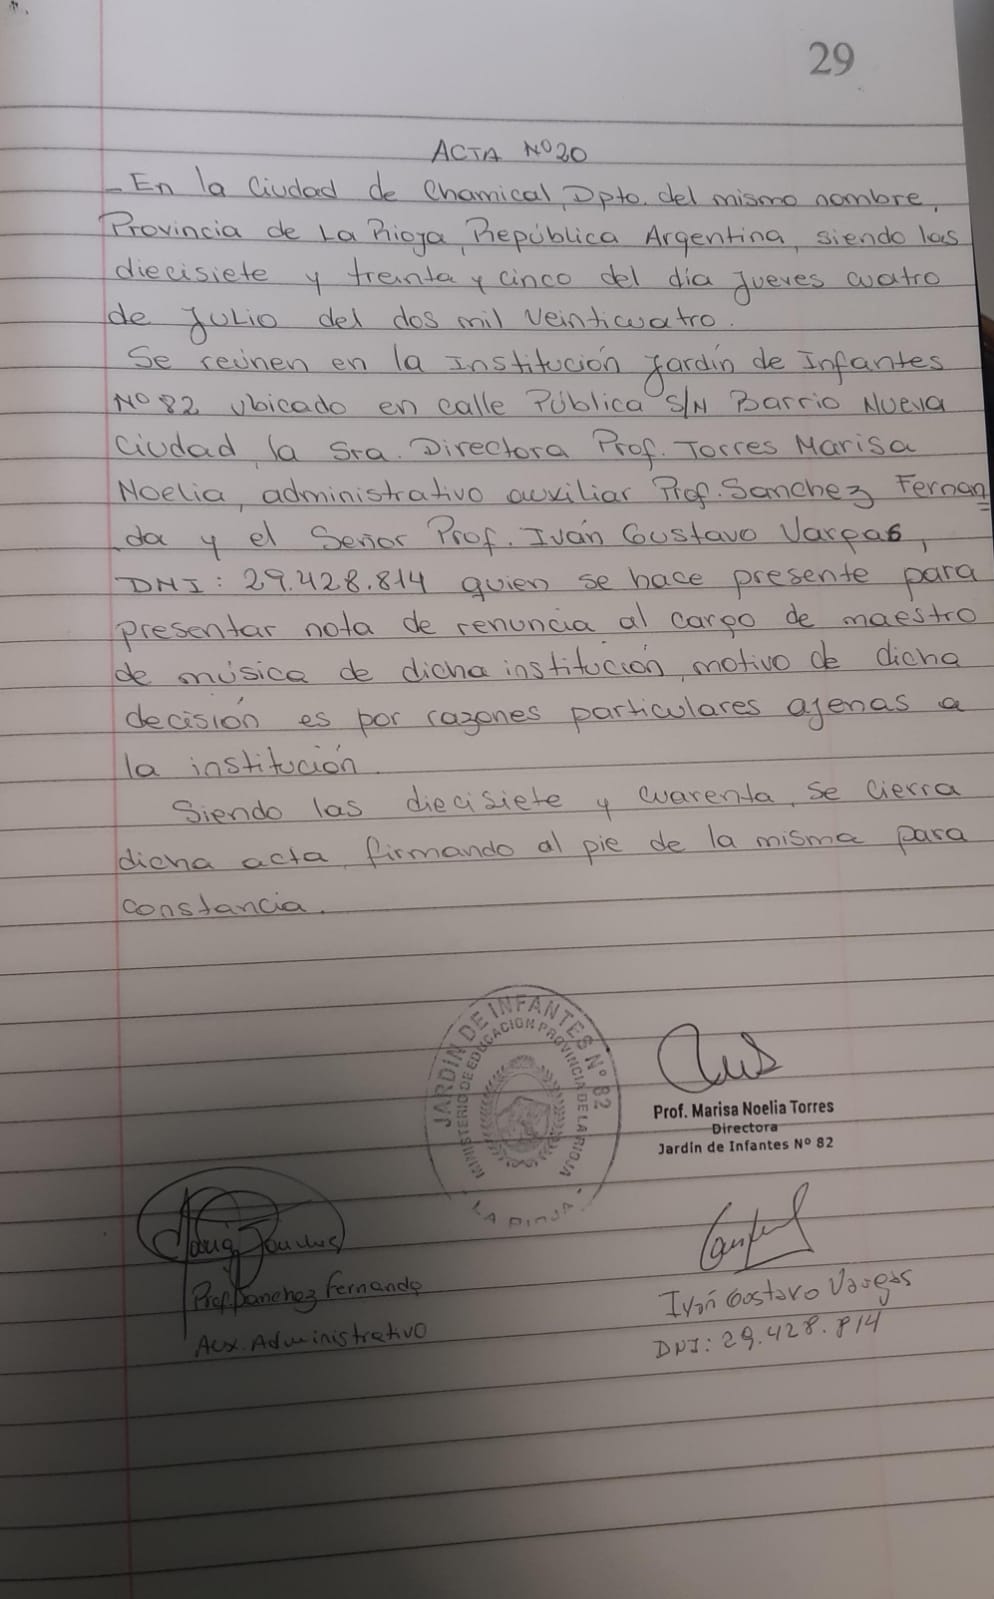 29
ACTA Nº 20
- En la Ciudad de Chamical, Dpto. del mismo nombre,
Provincia de La Rioja, República Argentina, siendo las
diecisiete y treinta y cinco del día jueves cuatro
de Julio del dos mil veinticuatro.
Se reúnen en la Institución Jardín de Infantes
Nº 82 ubicado en calle Pública S/N Barrio Nueva
Ciudad, la Sra. Directora Prof. Torres Marisa
Noelia, administrativo auxiliar Prof. Sanchez Fernan
da y el Señor Prof. Iván Gustavo Vargas,
DNI: 29.428.814 quien se hace presente para
presentar nota de renuncia al cargo de maestro
de música de dicha institución, motivo de dicha
decisión es por razones particulares ajenas a
la institución.
Siendo las diecisiete y cuarenta, se cierra
dicha acta, firmando al pie de la misma para
constancia.
JARDIN DE INFANTES Nº 82
MINISTERIO DE EDUCACION PROVINCIA DE LA RIOJA
- LA RIOJA -
Prof. Marisa Noelia Torres
Directora
Jardín de Infantes Nº 82
Prof. Sanchez Fernanda
Aux. Administrativo
Iván Gustavo Vargas
DNI: 29.428.814